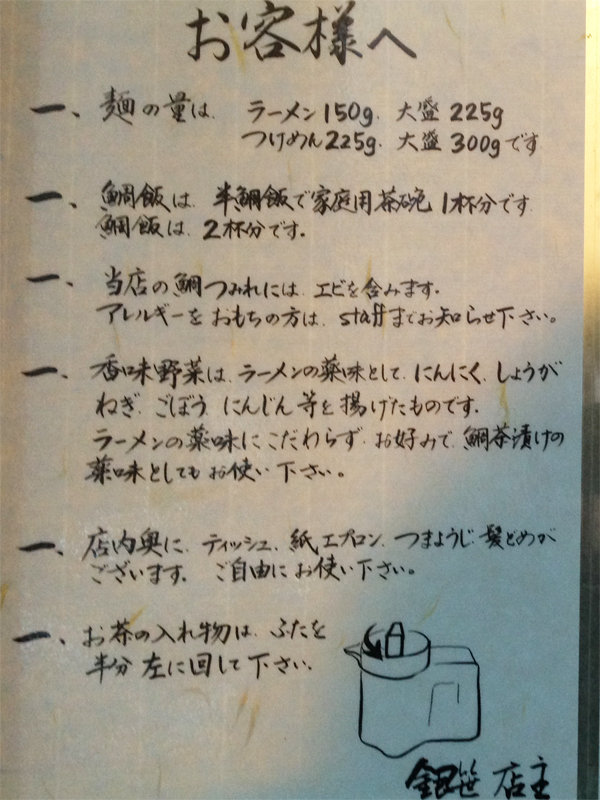 お客様へ
一、麺の量は、ラーメン150g、大盛225g
つけめん225g、大盛300gです
一、鯛飯は、半鯛飯で家庭用茶碗1杯分です
鯛飯は、2杯分です。
一、当店の鯛つみれには、エビを含みます。
アレルギーをおもちの方は、staffまでお知らせ下さい。
一、香味野菜は、ラーメンの薬味として、にんにく、しょうが
ねぎ、ごぼう、にんじん等を揚げたものです。
ラーメンの薬味にこだわらず、お好みで、鯛茶漬けの
薬味としてもお使い下さい。
一、店内奥に、ティッシュ、紙エプロン、つまようじ、髪どめが
ございます。ご自由にお使い下さい。
一、お茶の入れ物は、ふたを
半分左に回して下さい。
銀笹 店主